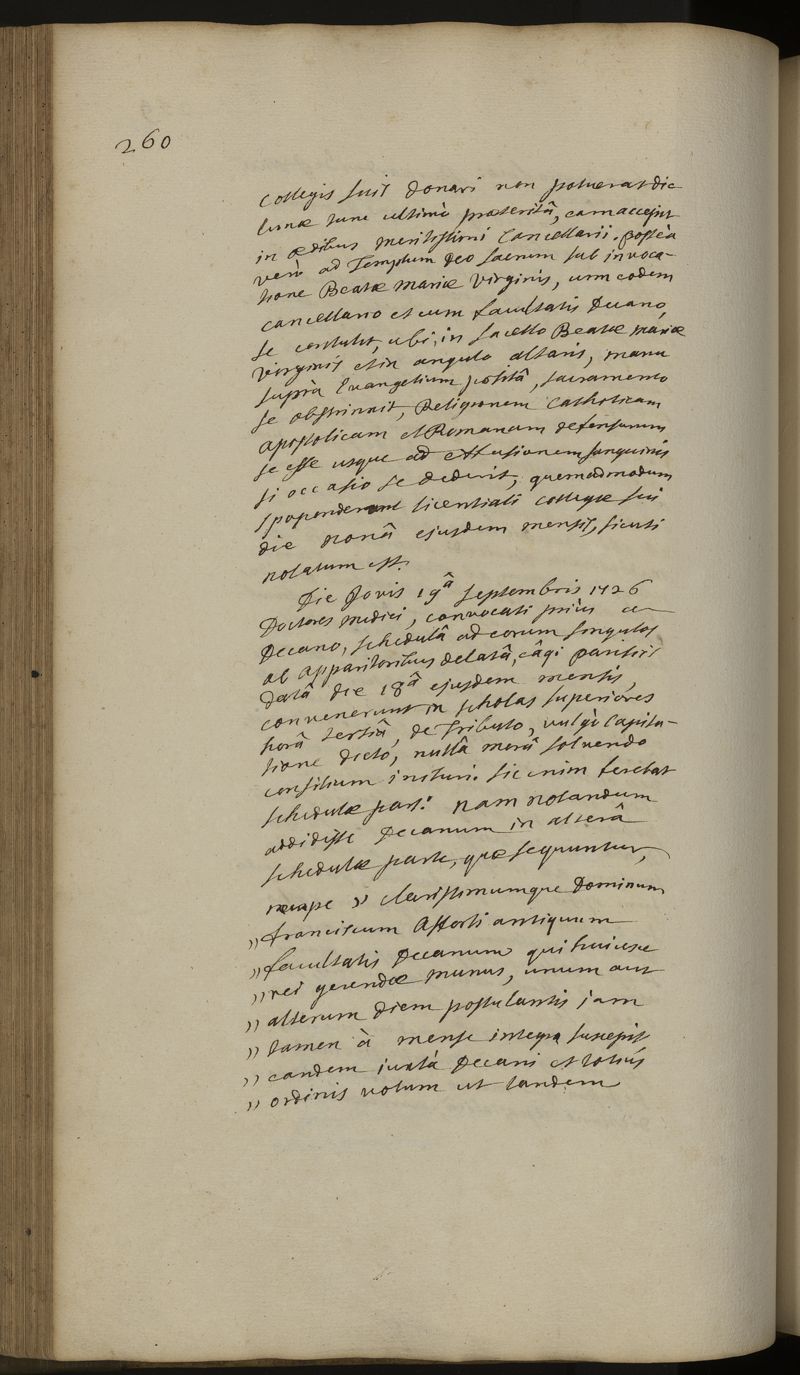 260
collegis suis donari non potuerat die
lunæ tunc ultimò præteritâ, eam accepit
in ædibus meritissimi Cancellarii. posteà
verò ad Templum Deo sacrum sub invoca-
tione Beatæ Mariæ Virginis, cum eodem
cancellario et cum facultatis Decano,
se contulit, ubi, in sacello Beatæ Mariæ
virginis et in angulo altaris, manu
suprà Evangelium positâ, sacramento
se obstrinxit, Religionem Catholicam
apostolicam et Romanam defensurum
se esse usque ad effusionem sanguinis
si occasio se dederit, quemadmodum
spoponderunt licentiati collegæ sui
die nonâ ejusdem mensis, sicuti
notatum est.
Die Jovis 19â Septembris 1726
Doctores medici, convocati priùs a
Decano, schedulâ ad eorum singulos
ab apparitoribus delatâ, eâqi pariter
datâ die 18â ejusdem mensis,
convenerunt in scholas superiores
horâ tertiâ, de Tributo, vulgò Capita-
tione dicto, nullâ morâ solvendo
consilium inituri. sic enim ferebat
schedulæ pars: nam notandum
addidisse Decanum in alterâ
schedulæ parte, quæ sequuntur,
nempe )) clarissimumque Dominum
)) franciscum Afforti antiquum
)) facultatis Decanum qui huiusce
)) rei gerendæ munus, unum aut
)) alterum diem postulantis jam
)) tamen à mense integro suscepit
)) eandem iuxtà Decani et totius
)) ordinis votum ut tandem